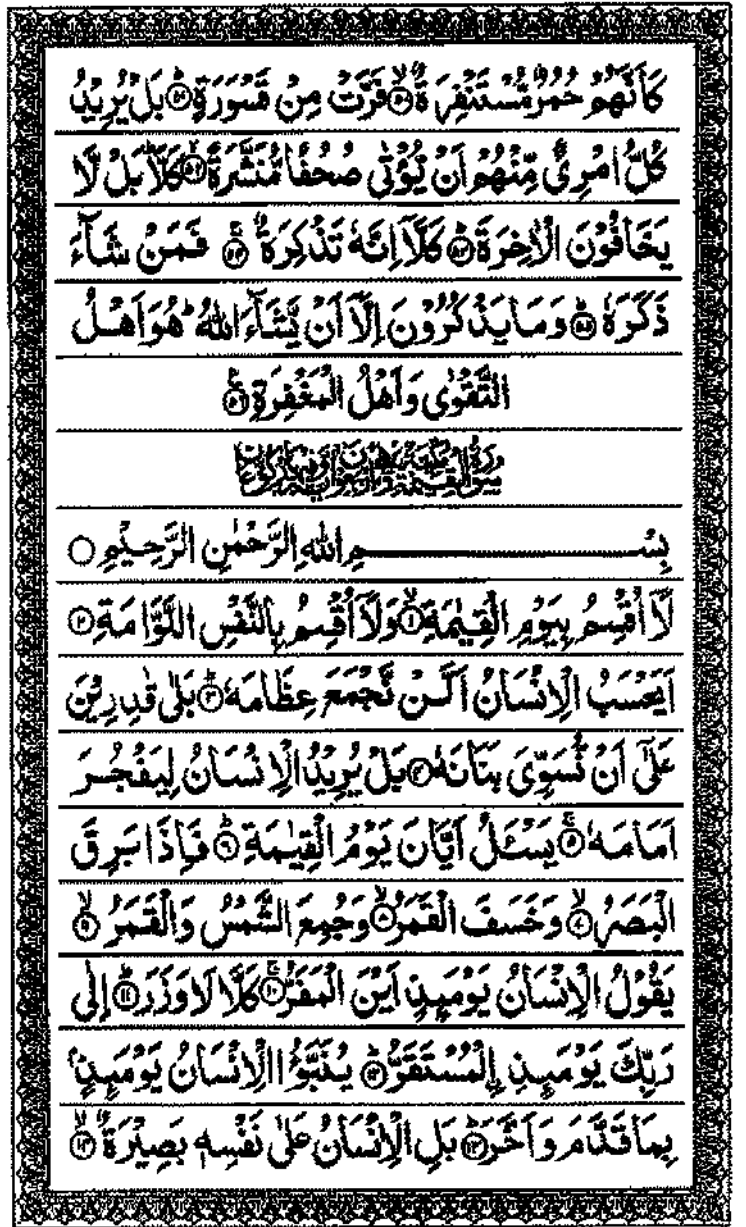 كَاَنَّهُمْ حُمُرٌ مُّسْتَنْفِرَةٌ ۙ﴿۵۰﴾ فَرَّتْ مِنْ قَسْوَرَةٍ ؕ﴿۵۱﴾ بَلْ يُرِيْدُ
كُلُّ امْرِئٍ مِّنْهُمْ اَنْ يُّؤْتٰى صُحُفًا مُّنَشَّرَةً ۙ﴿۵۲﴾ كَلَّا ؕ بَلْ لَّا
يَخَافُوْنَ الْاٰخِرَةَ ؕ﴿۵۳﴾ كَلَّاۤ اِنَّهٗ تَذْكِرَةٌ ۚ﴿۵۴﴾ فَمَنْ شَآءَ
ذَكَرَهٗ ؕ﴿۵۵﴾ وَمَا يَذْكُرُوْنَ اِلَّاۤ اَنْ يَّشَآءَ اللّٰهُ ؕ هُوَ اَهْلُ
التَّقْوٰى وَاَهْلُ الْمَغْفِرَةِ ؕ﴿۵۶﴾
سُوْرَةُ الْقِيٰمَةِ مَكِّيَّةٌ وَّهِيَ
بِسْمِ اللّٰهِ الرَّحْمٰنِ الرَّحِيْمِ ۝
لَاۤ اُقْسِمُ بِيَوْمِ الْقِيٰمَةِ ۙ﴿۱﴾ وَلَاۤ اُقْسِمُ بِالنَّفْسِ اللَّوَّامَةِ ﴿۲﴾
اَيَحْسَبُ الْاِنْسَانُ اَلَّنْ نَّجْمَعَ عِظَامَهٗ ؕ﴿۳﴾ بَلٰى قٰدِرِيْنَ
عَلٰۤى اَنْ نُّسَوِّىَ بَنَانَهٗ ﴿۴﴾ بَلْ يُرِيْدُ الْاِنْسَانُ لِيَفْجُرَ
اَمَامَهٗ ۚ﴿۵﴾ يَسْـَٔلُ اَيَّانَ يَوْمُ الْقِيٰمَةِ ؕ﴿۶﴾ فَاِذَا بَرِقَ
الْبَصَرُ ۙ﴿۷﴾ وَخَسَفَ الْقَمَرُ ۙ﴿۸﴾ وَجُمِعَ الشَّمْسُ وَالْقَمَرُ ۙ﴿۹﴾
يَقُوْلُ الْاِنْسَانُ يَوْمَئِذٍ اَيْنَ الْمَفَرُّ ۚ﴿۱۰﴾ كَلَّا لَا وَزَرَ ؕ﴿۱۱﴾ اِلٰى
رَبِّكَ يَوْمَئِذِ ۨالْمُسْتَقَرُّ ؕ﴿۱۲﴾ يُنَبَّؤُا الْاِنْسَانُ يَوْمَئِذٍۭ
بِمَا قَدَّمَ وَاَخَّرَ ؕ﴿۱۳﴾ بَلِ الْاِنْسَانُ عَلٰى نَفْسِهٖ بَصِيْرَةٌ ۙ﴿۱۴﴾